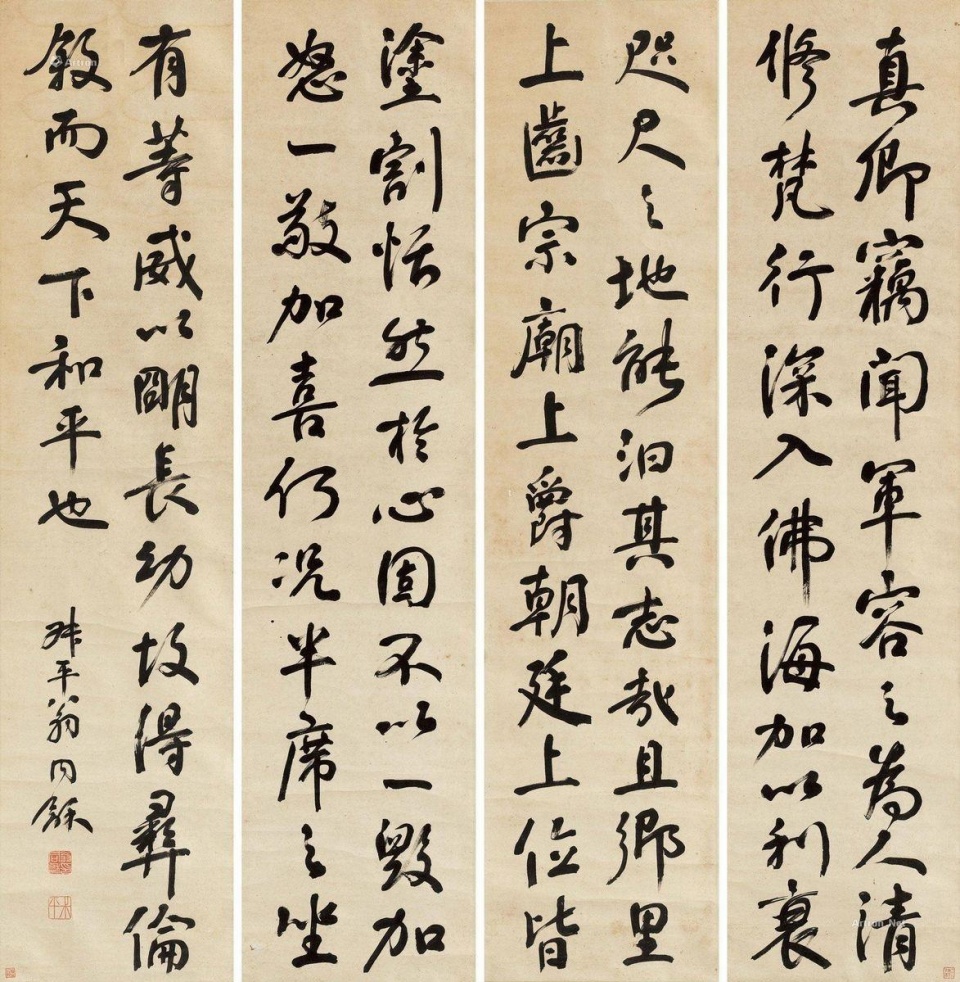 真卿竊聞軍容之為人清
修梵行深入佛海加以利衰
咫尺之地能汩其志哉且鄉里
上齒宗廟上爵朝廷上位皆
塗割恬然於心固不以一毀加
怒一敬加喜仍況半席之坐
有等威以朙長幼故得彝倫
敘而天下和平也
叔平翁同龢